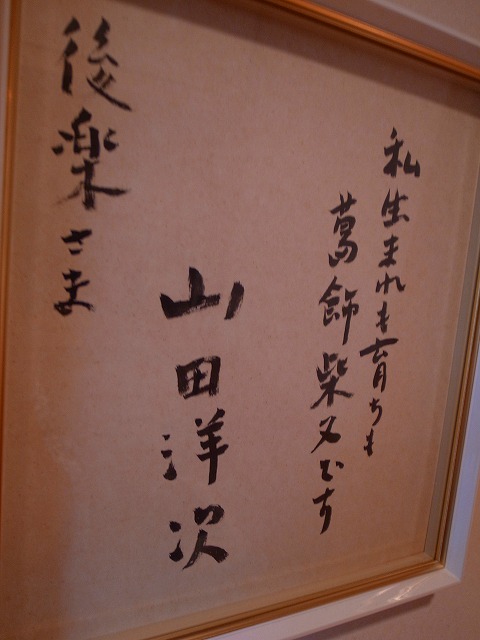 私生まれも育ちも
葛飾柴又です
山田洋次
後楽さま